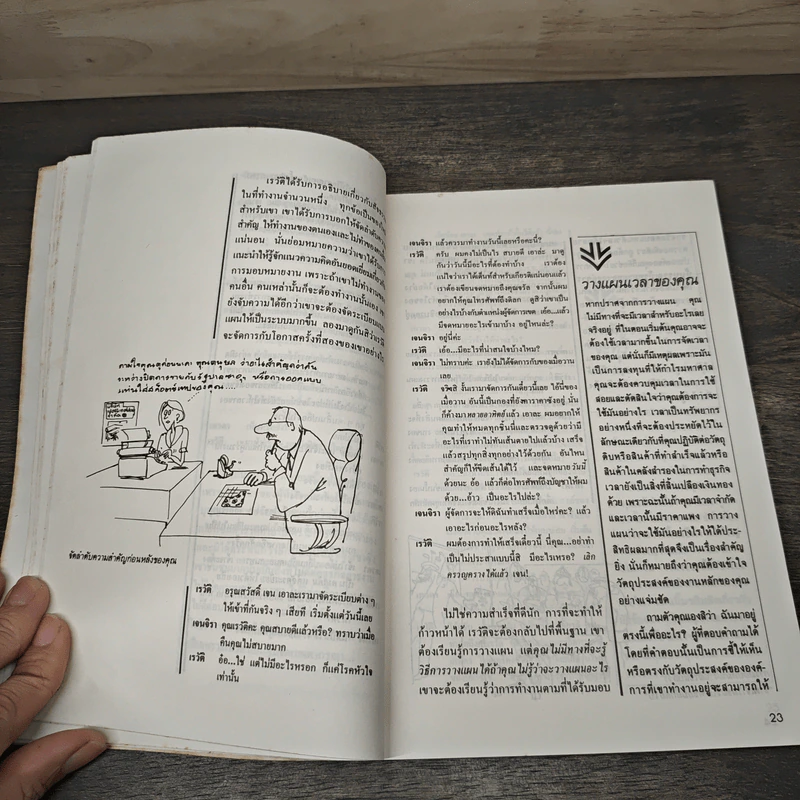 เรวัติได้รับการอธิบายเกี่ยวกับ
ในที่ทำงานจำนวนหนึ่ง ทุกข้อเป็น
สำหรับเขา เขาได้รับการบอกให้จัดลำดับความ
สำคัญ ให้ทำงานของตนเองและไม่ทำของคน
แน่นอน นั่นย่อมหมายความว่าเขาได้รับ
แนะนำให้รู้จักแนวความคิดอันยอดเยี่ยมเกี่ยวกับ
การมอบหมายงาน เพราะถ้าเขาไม่ทำงาน
คนอื่น คนเหล่านั้นก็จะต้องทำงานนั้นเอง เขา
ยังจับความได้อีกว่าเขาจะต้องจัดระเบียบและ
แผนให้เป็นระบบมากขึ้น ลองมาดูกันสิว่าเรวัติ
จะจัดการกับโอกาสครั้งที่สองของเขาอย่างไร
จัดลำดับความสำคัญก่อนหลังของคุณ
เรวัติ อรุณสวัสดิ์ เจน เอาละเรามาจัดระเบียบต่าง ๆ
ให้เข้าที่กันจริง ๆ เสียที เริ่มตั้งแต่วันนี้เลย
เจนจิรา คุณเรวัติคะ คุณสบายดีแล้วหรือ? ทราบว่าเมื่อ
คืนคุณไม่สบายมาก
เรวัติ อ๋อ...ใช่ แต่ไม่มีอะไรหรอก ก็แค่โรคหัวใจ
เท่านั้น
เจนจิรา แล้วควรมาทำงานวันนี้เลยหรือคะนี่?
เรวัติ ครับ ผมคงไม่เป็นไร สบายดี เอาล่ะ มาดู
กันว่าวันนี้มีอะไรที่ต้องทำบ้าง เราต้อง
แน่ใจว่าเราได้เต็นท์สำหรับเกียรติแน่นอนแล้ว
เราต้องเขียนจดหมายถึงคุณจรัล จากนั้นผม
อยากให้คุณโทรศัพท์ถึงดิลก ดูสิว่าเขาเป็น
อย่างไรบ้างกับตำแหน่งผู้จัดการเขต เอ้อ...แล้ว
มีจดหมายอะไรเข้ามาบ้าง อยู่ไหนล่ะ?
เจนจิรา อยู่นี่ค่ะ
เรวัติ เอ้อ...มีอะไรที่น่าสนใจบ้างไหม?
เจนจิรา ไม่ทราบค่ะ เรายังไม่ได้จัดการกับของเมื่อวาน
เลย
เรวัติ จริงสิ งั้นเรามาจัดการกันเดี๋ยวนี้เลย ไอ้นี่ของ
เมื่อวาน อันนี้เป็นกองที่ยังคาราคาซังอยู่ นั่น
ก็ค้างมาหลายอาทิตย์แล้ว เอาละ ผมอยากให้
คุณทำให้หมดทุกชิ้นนี่และตรวจดูด้วยว่ามี
อะไรที่เราทำไม่ทันเส้นตายไปแล้วบ้าง เสร็จ
แล้วสรุปทุกสิ่งทุกอย่างไว้ด้วยกัน อันไหน
สำคัญก็ให้ขีดเส้นใต้ไว้ และจดหมายวันนี้
ด้วยนะ อ้อ แล้วก็ต่อโทรศัพท์ถึงบัญชาให้ผม
ด้วย...อ้าว เป็นอะไรไปล่ะ?
เจนจิรา ผู้จัดการจะให้ดิฉันทำเสร็จเมื่อไหร่คะ? แล้ว
เอาอะไรก่อนอะไรหลัง?
เรวัติ ผมต้องการให้เสร็จเดี๋ยวนี้ นี่คุณ...อย่าทำ
เป็นไม่ประสาแบบนี้สิ มีอะไรเหรอ? เลิก
ครวญครางได้แล้ว เจน!
ไม่ใช่ความสำเร็จที่ดีนัก การที่จะทำให้
ก้าวหน้าได้ เรวัติจะต้องกลับไปที่พื้นฐาน เขา
ต้องเรียนรู้การวางแผน แต่คุณไม่มีทางที่จะรู้
วิธีการวางแผนได้ถ้าคุณไม่รู้ว่าจะวางแผนอะไร
เขาจะต้องเรียนรู้ว่าการทำงานตามที่ได้รับมอบ
วางแผนเวลาของคุณ
หากปราศจากการวางแผน คุณ
ไม่มีทางที่จะมีเวลาสำหรับอะไรเลย
จริงอยู่ ที่ในตอนเริ่มต้นคุณอาจจะ
ต้องใช้เวลามากขึ้นในการจัดเวลา
ของคุณ แต่นั่นก็มีเหตุผลเพราะมัน
เป็นการลงทุนที่ให้กำไรมหาศาล
คุณจะต้องควบคุมเวลาในการใช้
สอยและตัดสินใจว่าคุณต้องการจะ
ใช้มันอย่างไร เวลาเป็นทรัพยากร
อย่างหนึ่งที่จะต้องประหยัดไว้ใน
ลักษณะเดียวกับที่คุณปฏิบัติต่อวัตถุ
ดิบหรือสินค้าที่ทำสำเร็จแล้วหรือ
สินค้าในคลังสำรองในการทำธุรกิจ
เวลายังเป็นสิ่งที่สิ้นเปลืองเงินทอง
ด้วย เพราะฉะนั้นถ้าคุณมีเวลาจำกัด
และเวลานั้นมีราคาแพง การวาง
แผนว่าจะใช้มันอย่างไรให้ได้ประ-
สิทธิผลมากที่สุดจึงเป็นเรื่องสำคัญ
ยิ่ง นั่นก็หมายถึงว่าคุณต้องเข้าใจ
วัตถุประสงค์ของงานหลักของคุณ
อย่างแจ่มชัด
ถามตัวคุณเองสิว่า ฉันมาอยู่
ตรงนี้เพื่ออะไร? ผู้ที่ตอบคำถามได้
โดยที่คำตอบนั้นเป็นการชี้ให้เห็น
หรือตรงกับวัตถุประสงค์ขององค์-
การที่เขาทำงานอยู่จะสามารถให้
23